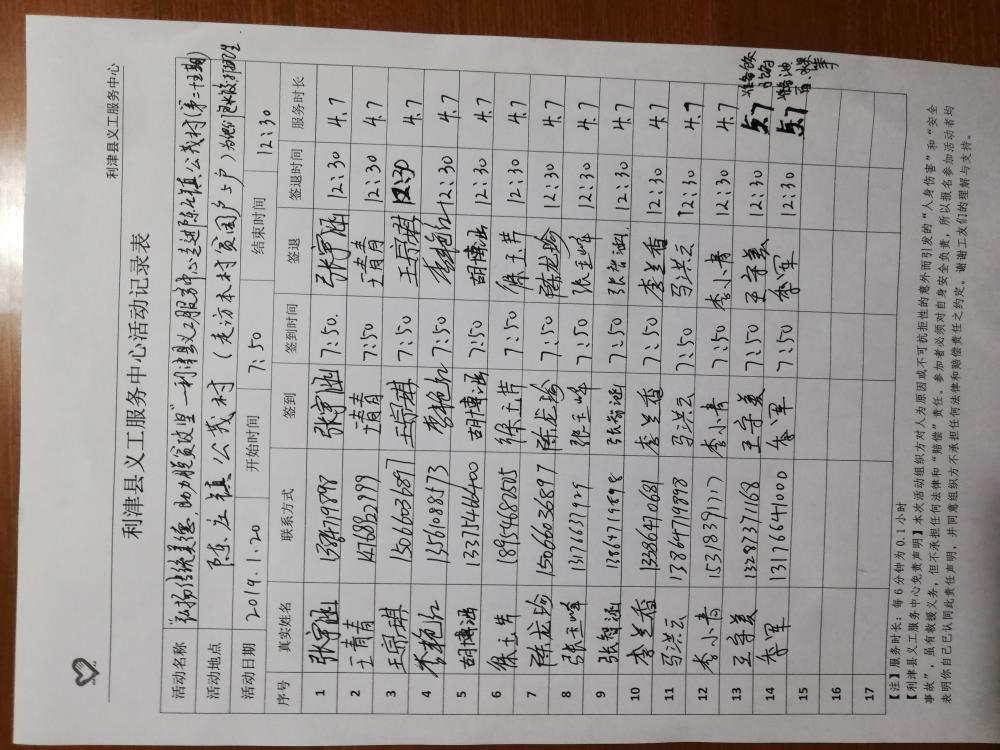 利津县义工服务中心
利津县义工服务中心活动记录表
活动名称 "弘扬传统美德,助力脱贫攻坚"—利津县义工服务中心走进陈庄镇公茂村(第二十五期)
活动地点 陈庄镇公茂村 (走访本村贫困户5户)
活动日期 2019.1.20 开始时间 7:50 结束时间 12:30
序号 真实姓名 联系方式 签到 签到时间 签退 签退时间 服务时长
1 张宇涵 7:50. 张宇涵 12:30 4.7
2 王青青 7:50 王青青 12:30 4.7
3 王宗琪 7:50 王宗琪 12:30 4.7
4 李艳红 13561088573 李艳红 7:50 李艳红 12:30 4.7
5 胡博涵 13375466400 胡博涵 7:50 胡博涵 12:30 4.7
6 徐玉芹 18954682505 徐玉芹 7:50 徐玉芹 12:30 4.7
7 陈龙珍 15066036897 陈龙珍 7:50 陈龙珍 12:30 4.7
8 张玉峰 张玉峰 7:50 张玉峰 12:30 4.7
9 张智涵 13864719898 张智涵 7:50 张智涵 12:30 4.7
10 李兰香 李兰香 7:50 李兰香 12:30 4.7
11 马洪云 13864719898 马洪云 7:50 马洪云 12:30 4.7
12 李小青 李小青 7:50 李小青 12:30 4.7
13 王守美 13287371168 王守美 7:50 王守美 12:30 4.7
14 李军 13176641000 李军 7:50 李军 12:30 5.7
15 12:30 5.7
16
17
【注】服务时长:每6分钟为0.1小时
【利津县义工服务中心免责声明】本次活动组织方对人为原因或不可抗拒性的意外而引发的"人身伤害"和"安全
事故",虽有救援义务,但不承担任何法律和"赔偿"责任。参加者必须对自身安全负责,所以报名参加活动者均
表明你自己已认同此责任声明,并同意组织方不承担任何法律和赔偿责任之约定。谢谢工友们的理解与支持。